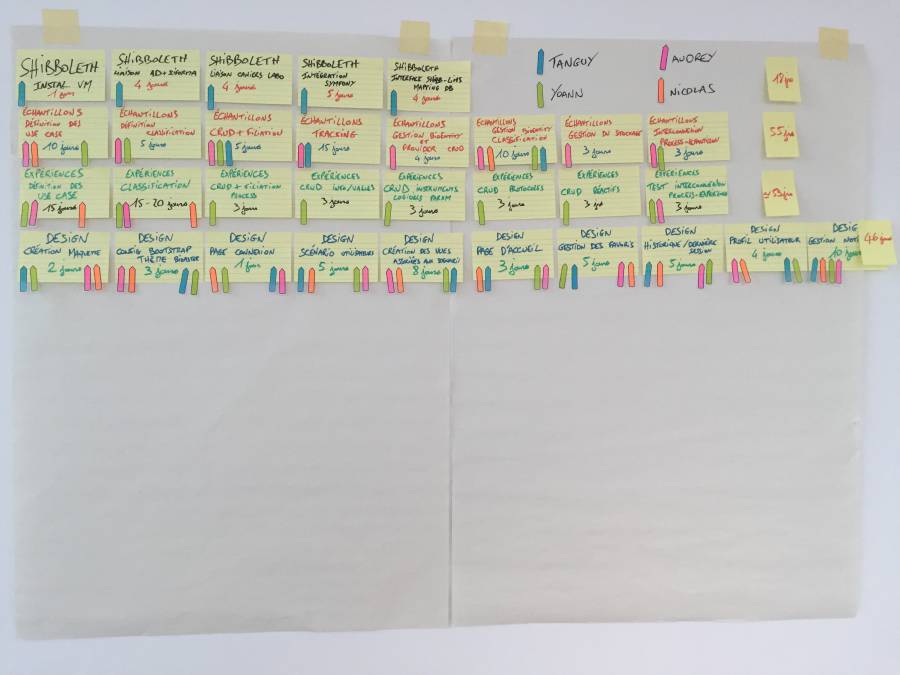 SHIBBOLETH
INSTAL VM
1 jour
SHIBBOLETH
LIAISON AD+
4 jours
SHIBBOLETH
LIAISON CAHIERS LABO
4 jours
SHIBBOLETH
INTÉGRATION
SYMFONY
5 jours
SHIBBOLETH
INTERFACE SHIBB-LIMS
MAPPING DB
4 jours
TANGUY
AUDREY
YOANN
NICOLAS
18 jrs
ÉCHANTILLONS
DÉFINITION DES
USE CASE
10 jours
ÉCHANTILLONS
DÉFINITION
CLASSIFICATION
5 jours
ÉCHANTILLONS
CRUD + FILIATION
5 jours
ÉCHANTILLONS
TRACKING
15 jours
ÉCHANTILLONS
GESTION BIOENTITY
ET
PROVIDER CRUD
4 jours
ÉCHANTILLONS
GESTION BIOENTITY
CLASSIFICATION
10 jours
ÉCHANTILLONS
GESTION DU STOCKAGE
3 jours
ÉCHANTILLONS
INTERCONNEXION
PROCESS-ÉCHANTILLON
3 jours
55 jrs
EXPÉRIENCES
DÉFINITION DES
USE CASE
15 jours
EXPÉRIENCES
CLASSIFICATION
15-20 jours
EXPÉRIENCES
CRUD + FILIATION
PROCESS
3 jours
EXPÉRIENCES
CRUD
3 jours
EXPÉRIENCES
CRUD INSTRUMENTS
LOGICIELS PARAM
3 jours
EXPÉRIENCES
CRUD PROTOCOLES
3 jours
EXPÉRIENCES
CRUD RÉACTIFS
3 jrs
EXPÉRIENCES
TEST INTERCONNEXION
PROCESS-EXPÉRIENCE
3 jours
≈ 53 jrs
DESIGN
CRÉATION MAQUETTE
2 jours
DESIGN
CONFIG BOOTSTRAP
THÈME BIOASTER
3 jours
DESIGN
PAGE CONNEXION
1 jour
DESIGN
SCÉNARIO UTILISATEURS
5 jours
DESIGN
CRÉATION DES VUES
ASSOCIÉES AUX
8 jours
DESIGN
PAGE D'ACCUEIL
3 jours
DESIGN
GESTION DES FAVORIS
5 jours
DESIGN
HISTORIQUE / DERNIÈRE
SESSION
5 jours
DESIGN
PROFIL UTILISATEUR
4 jours
DESIG
GESTION
10 jours
46 jours